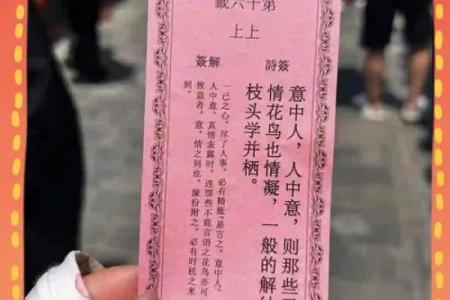 第十六籤
上上
簽詩
意中人，人中意，则那些
情花鸟也情凝，一般的解
枝头学并栖。
解簽
一己之心，尽了人事，必有精 言之，意中人，
人中意，真情表露时，连那些不能言语之花鸟亦可
致意者，意，情之到也，缘份附之，必有时机之来
到。